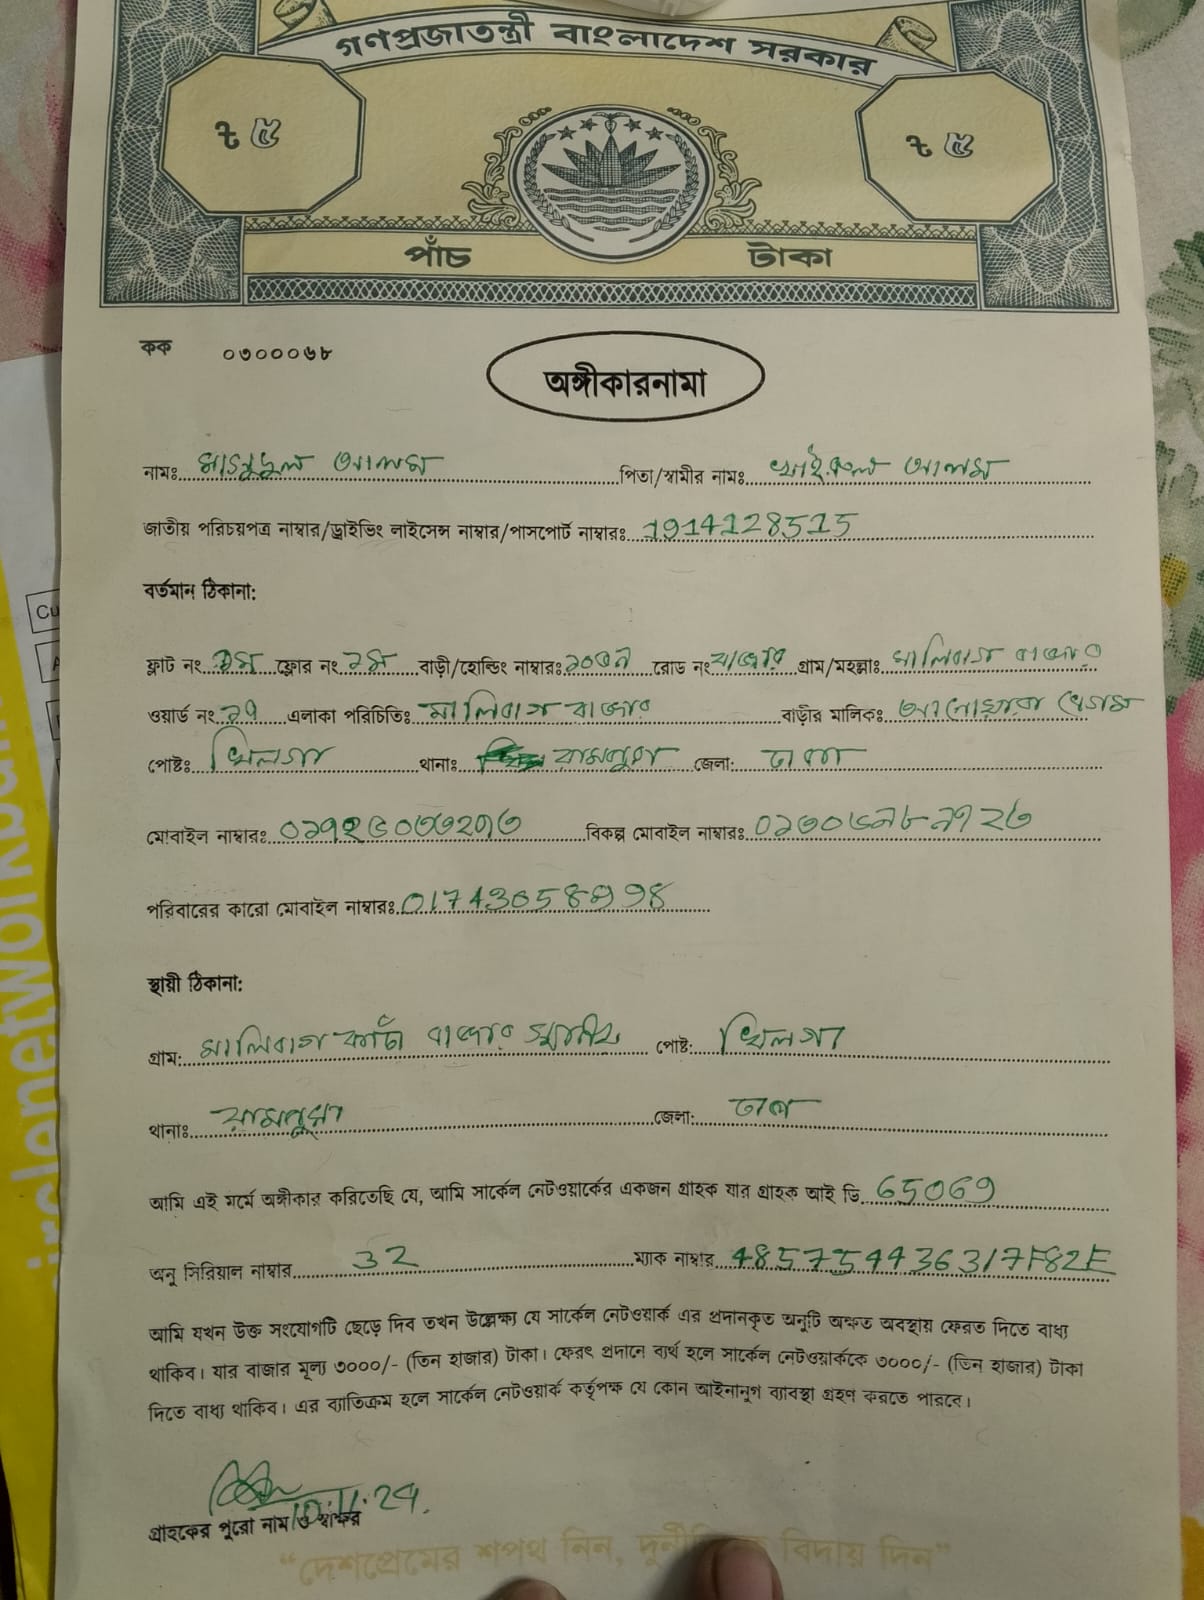 গণপ্রজাতন্ত্রী বাংলাদেশ সরকার
৳ ৫ ৳ ৫
পাঁচ টাকা
কক ০৩০০০৬৮
অঙ্গীকারনামা
নামঃ মাসুদুল আলম পিতা/স্বামীর নামঃ আলম
জাতীয় পরিচয়পত্র নাম্বার/ড্রাইভিং লাইসেন্স নাম্বার/পাসপোর্ট নাম্বারঃ 1914128515
বর্তমান ঠিকানা:
ফ্লাট নং ফ্লোর নং ১ম বাড়ী/হোল্ডিং নাম্বারঃ রোড নং বাজার গ্রাম/মহল্লাঃ মালিবাগ বাজার
ওয়ার্ড নং এলাকা পরিচিতিঃ মালিবাগ বাজার বাড়ীর মালিকঃ আনোয়ারা বেগম
পোষ্টঃ খিলগা থানাঃ রামপুরা জেলা: ঢাকা
মোবাইল নাম্বারঃ বিকল্প মোবাইল নাম্বারঃ
পরিবারের কারো মোবাইল নাম্বারঃ
স্থায়ী ঠিকানা:
গ্রাম: মালিবাগ বাজার পোষ্ট: খিলগা
থানাঃ রামপুরা জেলা: ঢাকা
আমি এই মর্মে অঙ্গীকার করিতেছি যে, আমি সার্কেল নেটওয়ার্কের একজন গ্রাহক যার গ্রাহক আই ডি 65069
অনু সিরিয়াল নাম্বার 32 ম্যাক নাম্বার 485754436317F82E
আমি যখন উক্ত সংযোগটি ছেড়ে দিব তখন উল্লেক্ষ্য যে সার্কেল নেটওয়ার্ক এর প্রদানকৃত অনুটি অক্ষত অবস্থায় ফেরত দিতে বাধ্য
থাকিব। যার বাজার মূল্য ৩০০০/- (তিন হাজার) টাকা। ফেরৎ প্রদানে ব্যর্থ হলে সার্কেল নেটওয়ার্ককে ৩০০০/- (তিন হাজার) টাকা
দিতে বাধ্য থাকিব। এর ব্যাতিক্রম হলে সার্কেল নেটওয়ার্ক কর্তৃপক্ষ যে কোন আইনানুগ ব্যাবস্থা গ্রহণ করতে পারবে।
গ্রাহকের পুরো নাম ও স্বাক্ষর
"দেশপ্রেমের শপথ নিন, বিদায় দিন"